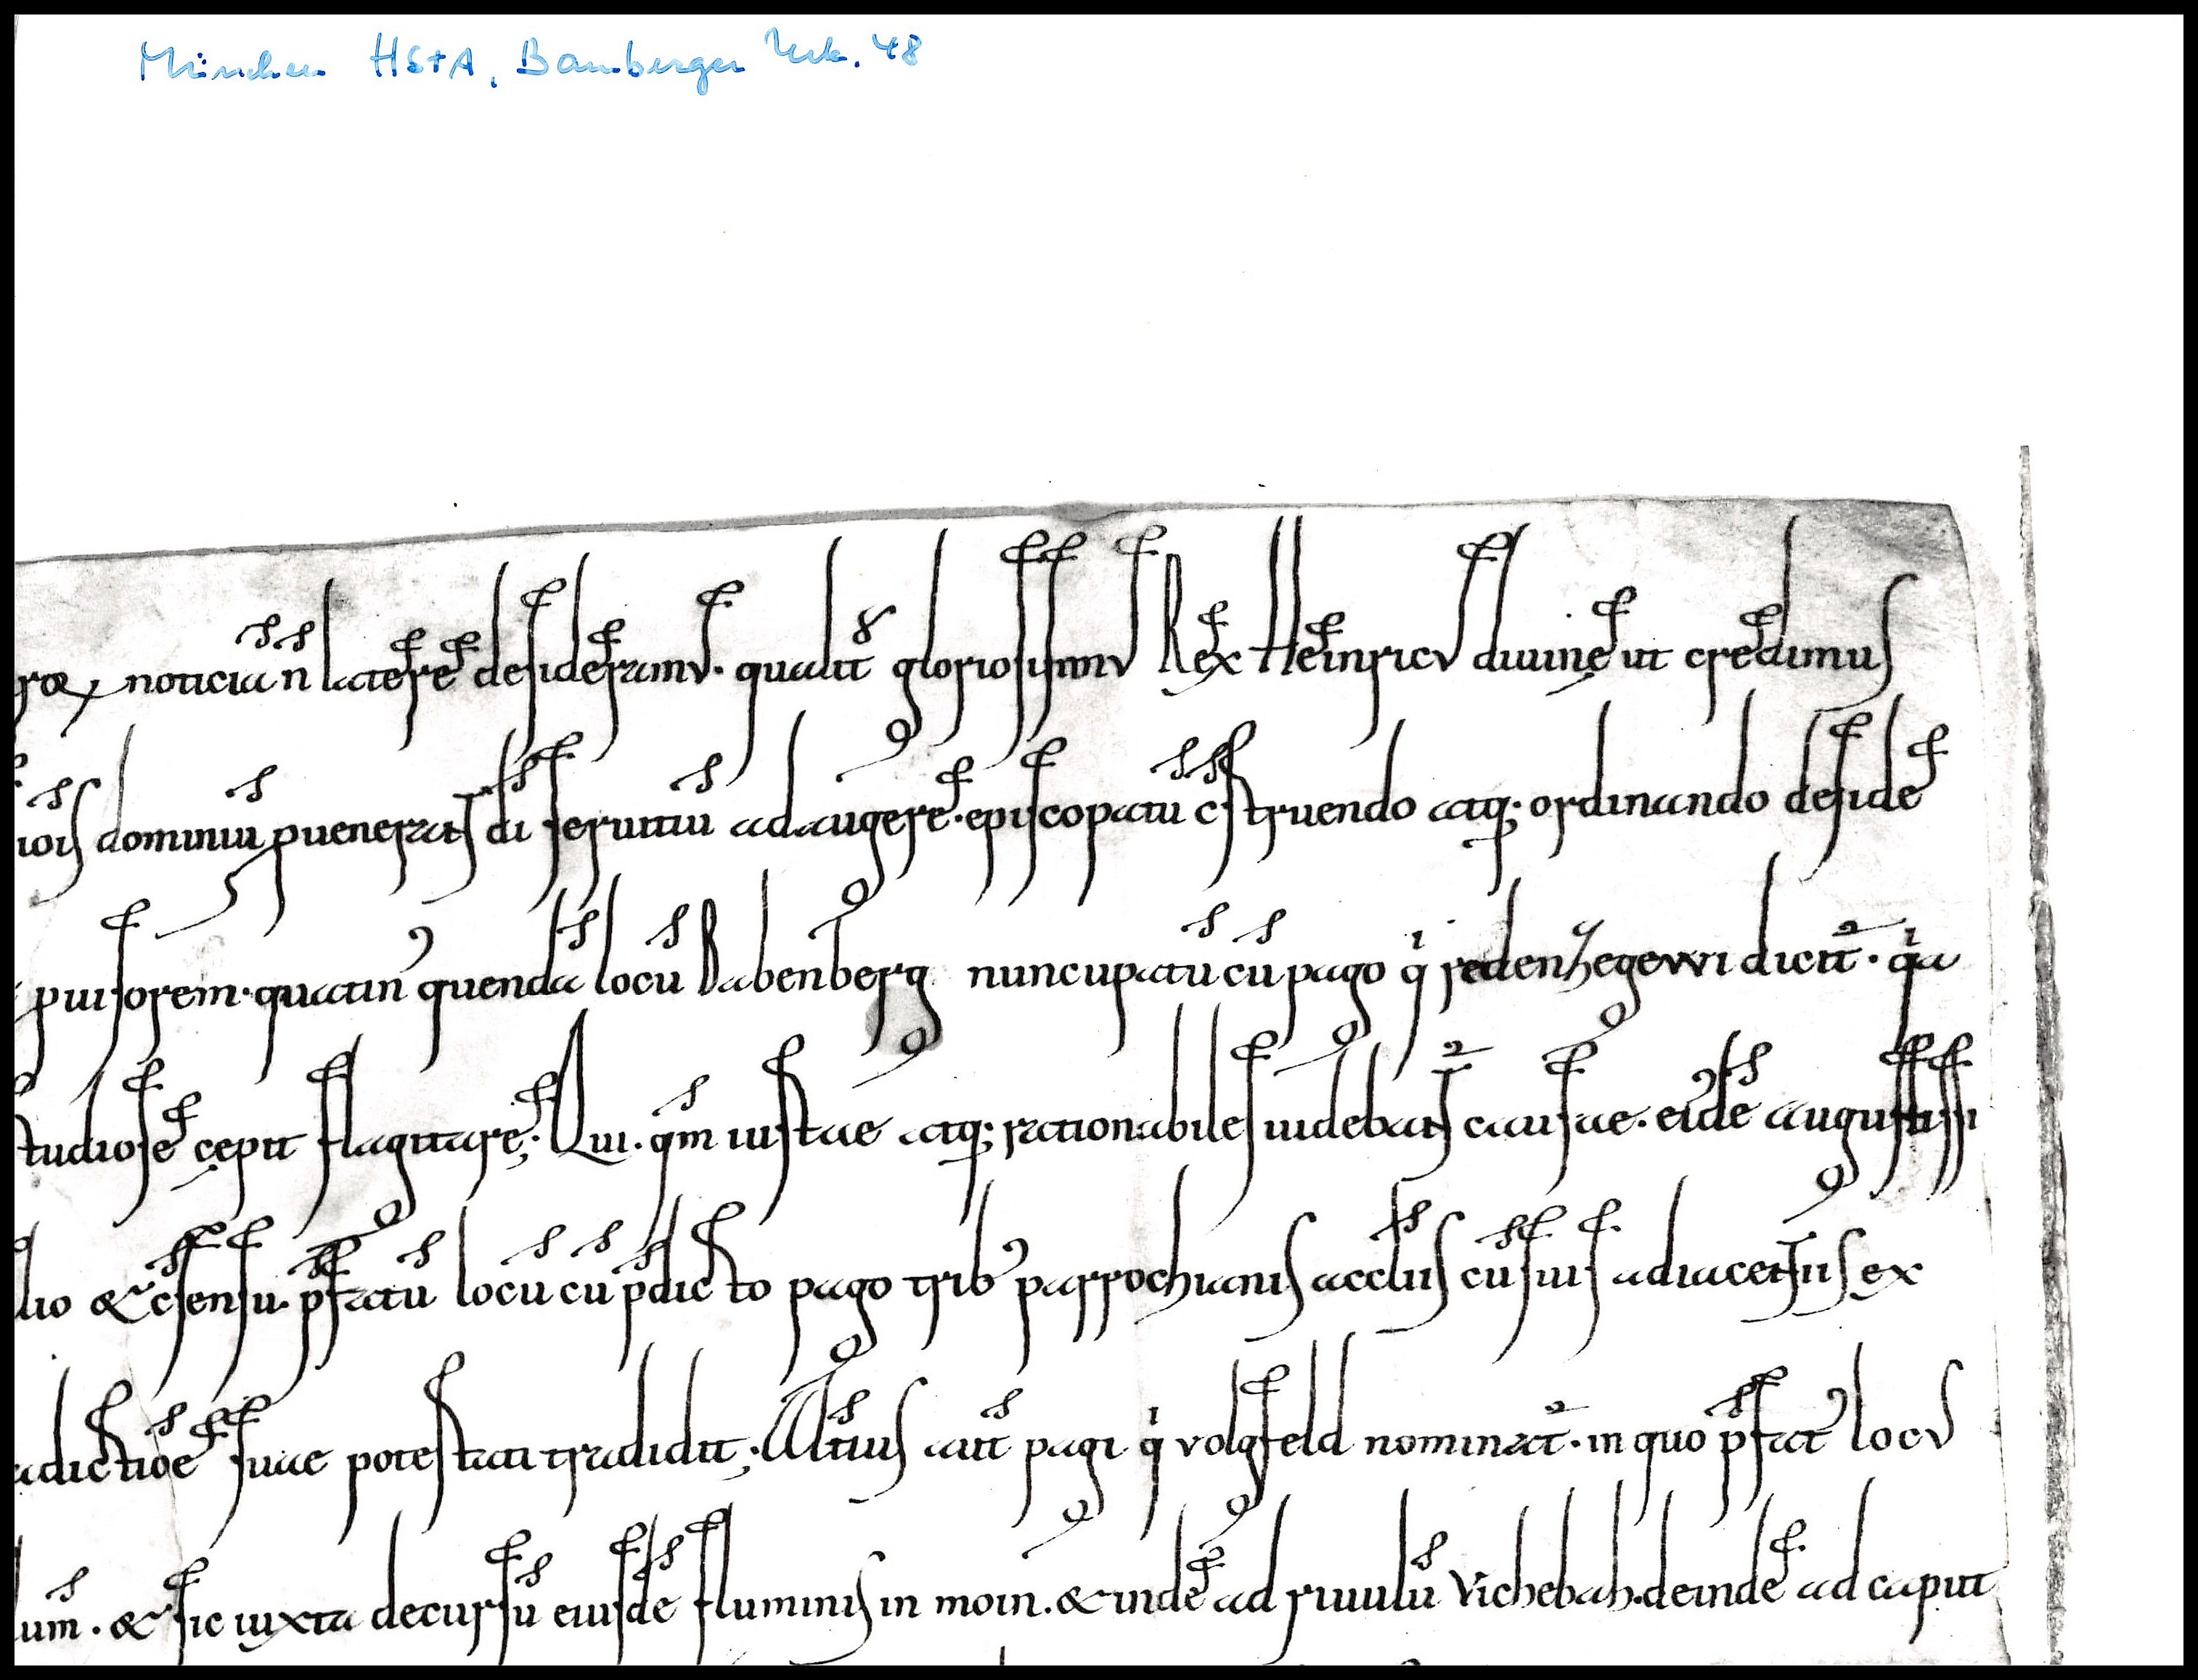 München HStA, Bamberger Urk. 48
noticiā n̄ latere desideramus. qualit̄ gloriosissimus Rex Heinricus diuinę ut credimus
dominiū ꝑuenerat dī seruitiū adaugere. episcopatū c̄struendo atq; ordinando deside
ꝓuisorem. quatinꝰ quendā locū Babenberg nuncupatū cū pago qͥ redenzegewi dicit᷑. qͥa
studiose cępit flagitare; Qui. qm̄ iustae atq; rationabiles uidebant᷑ causae. eidē augustissi
lio & c̄sensu. p̄fatū locū cū p̄dicto pago tribꝰ parrochianis aecc̄liis cū suis adiacentiis ex
dictiōe suae potestati tradidit; Alt̄ius aut̄ pagi qͥ volgfeld nominat᷑. in quo p̄fatꝰ locus
um̄. & sic iuxta decursū eiusdē fluminis in moin. & inde ad riuulū Vichebah. deinde ad caput